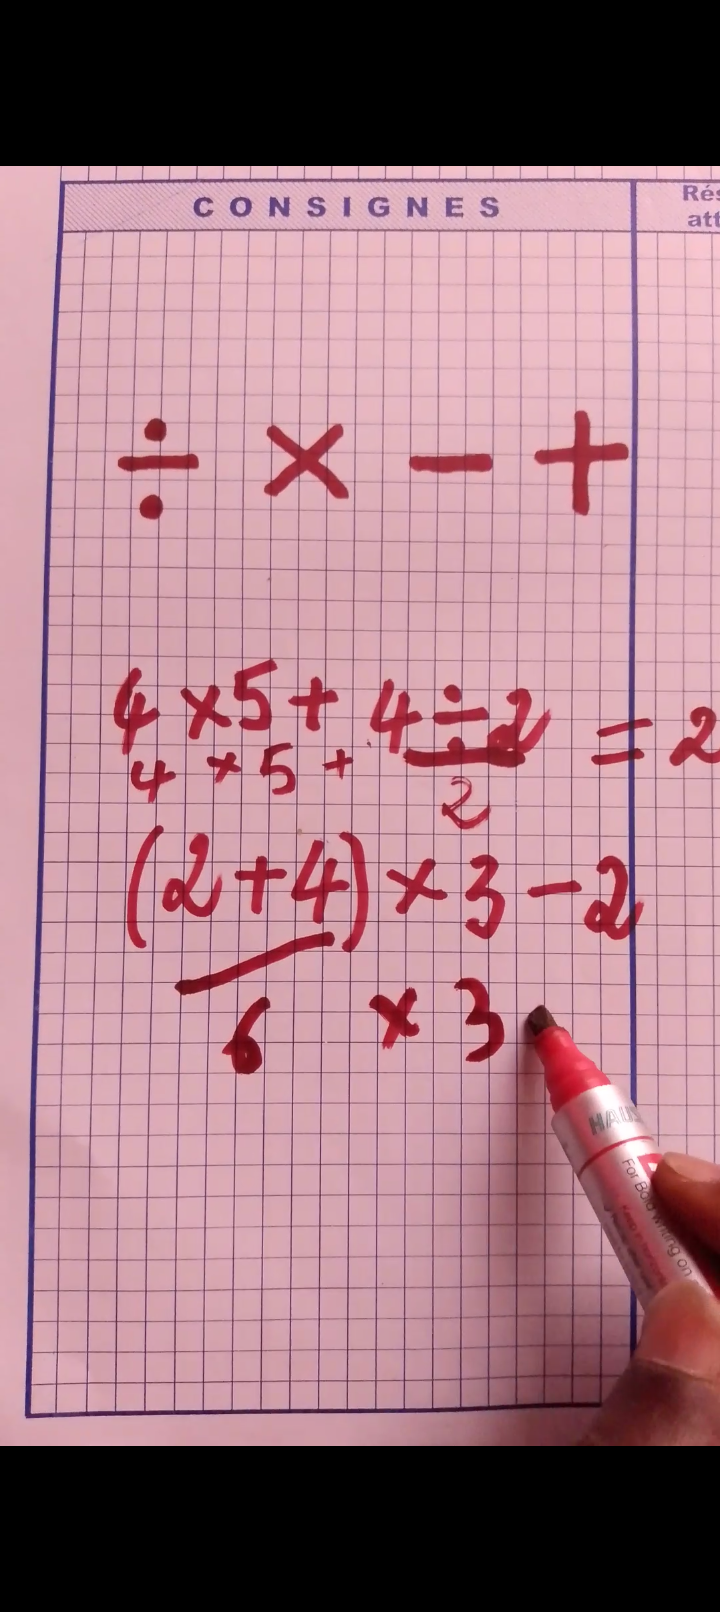 CONSIGNES
Rés
att
÷ × − +
4 × 5 + 4 ÷ 2 = 2
4 × 5 + 2
(2 + 4) × 3 − 2
6 × 3
HAUS
For Bold writing on